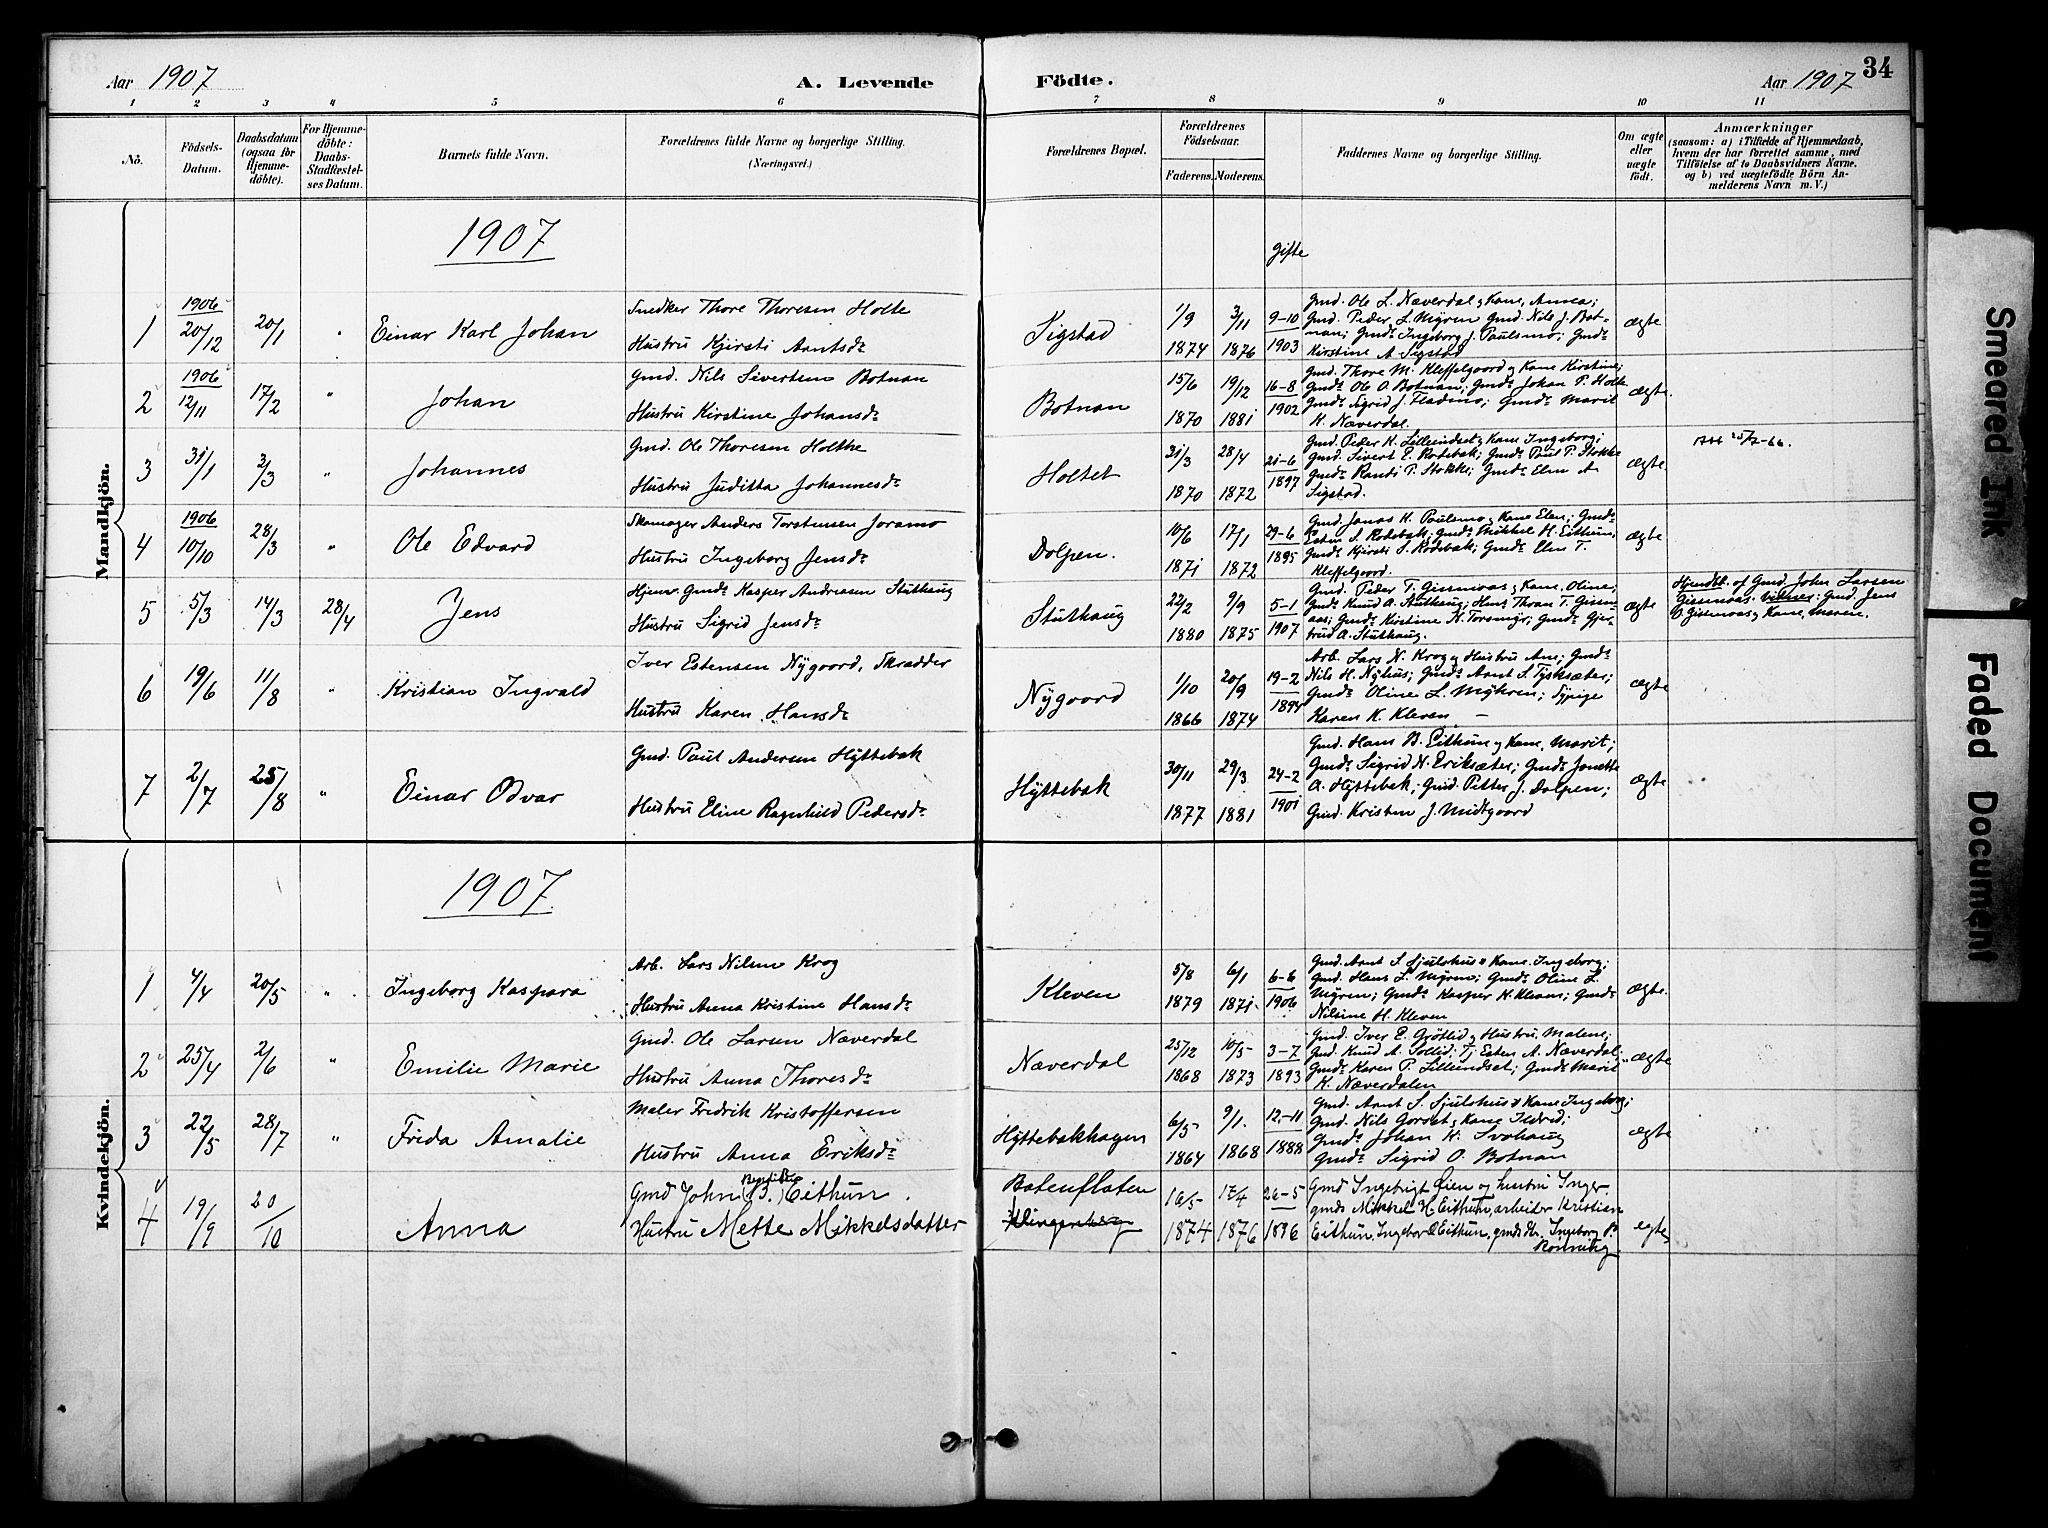 34
Aar 1907
A. Levende
Födte.
Aar 1907
1 2 3 4 5 6 7 8 9 10 11
No.
Födsels-Datum.
Daabsdatum (ogsaa för Hjemme-döbte).
For Hjemme-döbte: Daabs-Stadfæstel-ses Datum.
Barnets fulde Navn.
Forældrenes fulde Navne og borgerlige Stilling. (Næringsvei.)
Forældrenes Bopæl.
Forældrenes Födselsaar.
Faderens. Moderens.
Faddernes Navne og borgerlige Stilling.
Om ægte eller uægte födt.
Anmærkninger
(saasom: a) i Tilfælde af Hjemmedaab, hvem der har forrettet samme, med Tilföielse af to Daabsvidners Navne. og b) ved uægtefödte Börn Anmelderens Navn m. V.)
Mandkjön.
1907
gifte
1 1906 20/12 20/1 " Einar Karl Johan
Snedker Thore Thoresen Holte
Hustru Kjirsti Arntsdr
Sigstad 1/9 1874 3/11 1876 9-10 1903
Gmd. Ole L. Næverdal og Kone, Anna;
Gmd. Peder L. Myren Gmd. Nils J. Bot-
nan; Gmds Ingeborg J. Paulsmo; Gmds
Kirstine A Sigstad
ægte
2 1906 12/11 17/2 " Johan
Gmd. Nils Sivertsen Botnan
Hustru Kirstine Johansdr
Botnan 15/6 1870 19/12 1881 16-8 1902
Gmd. Thore M. Kleffelgaard og Kone Kirstine;
Gmds Ole O. Botnan; Gmds Johan P. Holte
Gmds Sigrid J. Fladmo; Gmds Marit
K. Næverdal.
ægte.
3 31/1 3/3 " Johannes
Gmd. Ole Thoresen Holthe
Hustru Juditta Johannesdr
Holtet 31/3 1870 28/4 1872 21-6 1897
Gmd. Peder K. Lilleindset og Kone Ingeborg;
Gmd. Sivert E. Rodebak; Gmds Paul P. Stokke
Gmds Randi P. Stokke; Gmds Elen A
Sigstad.
ægte.
4 1906 10/10 28/3 " Ole Edvard
Skomager Anders Torstensen Joramo
Hustru Ingeborg Jensdr
Dolpen. 10/6 1871 17/1 1872 29-6 1895
Gmd. Jonas K. Paulsmo og Kone Elen; Gmds
Esten S. Rodebak; Gmds Mikkel H. Eithun;
Gmds Kjirsti S. Rodebak; Gmds Elen T.
Kleffelgaard.
ægte
5 5/3 14/3 28/4 Jens
Hjemv. Gmds Kasper Andreasen Stuthaug
Hustru Sigrid Jensdr
Stuthaug 22/2 1880 9/9 1875 5-1 1907
Gmd. Peder T. Gisennaas og Kone, Oline;
Gmds Knud A. Stuthaug; Thoan T. Gisen-
aas; Gmds Kirstine K. Torsmyr; Gmds Gjer-
trud A. Stuthaug.
ægte
Hjemdbt. af Gmd. John Larsen
Gisennaas. vidner: Gmd. Jens
Gisennaas og Kone, Maren.
6 19/6 11/8 " Kristian Ingvald
Iver Estensen Nygaard, Skrædder
Hustru Karen Hansdr
Nygaard 1/10 1866 20/9 1874 19-2 1894
Arb. Lars N. Krog og Hustru Ane; Gmds
Nils H. Nyhus; Gmds Arnt S. Tyskæter;
Gmds Oline L. Myhren; Pige
Karen K. Kleven —
ægte
7 2/7 25/8 " Einar Odvar
Gmd. Paul Andersen Hyttebak
Hustru Eline Ragnhild Pedersdr
Hyttebak 30/11 1877 29/3 1881 24-2 1901
Gmd. Hans B. Eithun og Kone, Marit;
Gmds Sigrid N. Eriksæter; Gmds Jonette
A. Hyttebak; Gmd. Petter J. Dolpen;
Gmd. Kristen J. Midtgaard
ægte
Kvindekjön.
1907.
1 4/4 20/5 " Ingeborg Kaspara
Arb. Lars Nilsen Krog
Hustru Anna Kristine Hansdr
Kleven 5/8 1879 6/1 1871 6-6 1906
Gmd. Arnt S Sjulshus & Kone. Ingeborg;
Gmd. Hans L. Myren; Gmds Oline L.
Myren; Gmds Kasper K. Kleven; Gmds
Nilsine H. Kleven
ægte.
2 25/4 2/6 " Emilie Marie
Gmd. Ole Larsen Næverdal
Hustru Anna Thoresdr
Næverdal 25/12 1868 10/5 1873 3-7 1893
Gmd. Iver E. Grötlid og Hustru Malene;
Gmd. Knud A. Sollid; Tj. Esten A. Næverdal
Gmds Karen P. Lilleindset; Gmds Marit
K. Næverdalen
ægte
3 22/5 28/7 " Frida Amalie
Maler Fredrik Kristoffersen
Hustru Anna Eriksdr
Hyttebakhagen 6/5 1864 9/1. 1868 12-11 1888
Gmd. Arnt S. Sjulshus & Kone Ingeborg;
Gmd. Nils Gorset og Kone Ildrid;
Gmds Johan K. Svohaug
Gmds Sigrid O. Botnan
ægte
4 19/9 20/10 Anna
Gmd John (B.) Eithun.
Hustru Mette Mikkelsdatter
Botenfloten
Klingenberg
16/5 1874 17/4 1876 26-5 1896
Gmd Ingebrigt Øien og hustru Inger.
gmds Mikkel H Eithun, arbeider Kristian
Eithun, Ingebor Eithun, gmds dtr. Ingeborg P.
Ronning.
egte
Smeared Ink
Faded Document